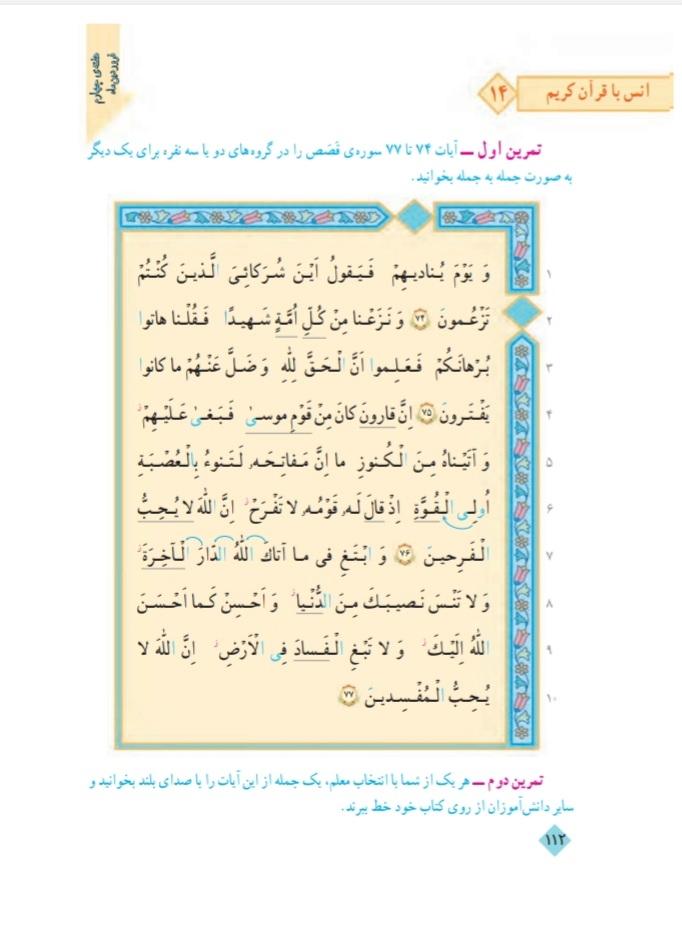 هفته‌ی چهارم
فروردین‌ماه
انس با قرآن کریم
۱۴
تمرین اول ــ آیات ۷۴ تا ۷۷ سوره‌ی قَصَص را در گروه‌های دو یا سه نفره برای یک دیگر
به صورت جمله به جمله بخوانید.
وَ یَوْمَ یُنادیهِمْ فَیَقولُ اَیْنَ شُرَکائِیَ الَّذینَ کُنْتُمْ ۱
تَزْعُمونَ ﴿۷۴﴾ وَ نَزَعْنا مِنْ کُلِّ اُمَّةٍ شَهیدًا فَقُلْنا هاتوا ۲
بُرْهانَکُمْ فَعَلِموا اَنَّ الْحَقَّ لِلّٰهِ وَ ضَلَّ عَنْهُمْ ما کانوا ۳
یَفْتَرونَ ﴿۷۵﴾ اِنَّ قارونَ کانَ مِنْ قَوْمِ موسیٰ فَبَغیٰ عَلَیْهِمْ ۴
وَ آتَیْناهُ مِنَ الْکُنوزِ ما اِنَّ مَفاتِحَه لَتَنوءُ بِالْعُصْبَةِ ۵
اُولِی الْقُوَّةِ اِذْ قالَ لَه قَوْمُه لا تَفْرَحْ اِنَّ اللّٰهَ لا یُحِبُّ ۶
الْفَرِحینَ ﴿۷۶﴾ وَ ابْتَغِ فی ما آتاكَ اللّٰهُ الدّارَ الْآخِرَةَ ۷
وَ لا تَنْسَ نَصیبَكَ مِنَ الدُّنْیا وَ اَحْسِنْ کَما اَحْسَنَ ۸
اللّٰهُ اِلَیْكَ وَ لا تَبْغِ الْفَسادَ فِی الْاَرْضِ اِنَّ اللّٰهَ لا ۹
یُحِبُّ الْمُفْسِدینَ ﴿۷۷﴾ ۱۰
تمرین دوم ــ هر یک از شما با انتخاب معلم، یک جمله از این آیات را با صدای بلند بخوانید و
سایر دانش‌آموزان از روی کتاب خود خط ببرند.
۱۱۲